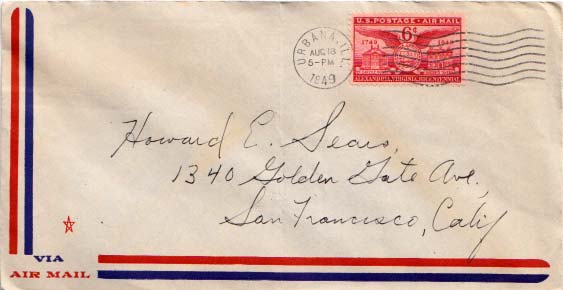 U.S. POSTAGE - AIR MAIL
1749 6¢ 1949
ALEXANDRIA, VIRGINIA, BICENTENNIAL
URBANA, ILL.
AUG 18
5 - PM
1949
Howard E. Sears,
1340 Golden Gate Ave.,
San Francisco, Calif
VIA
AIR MAIL